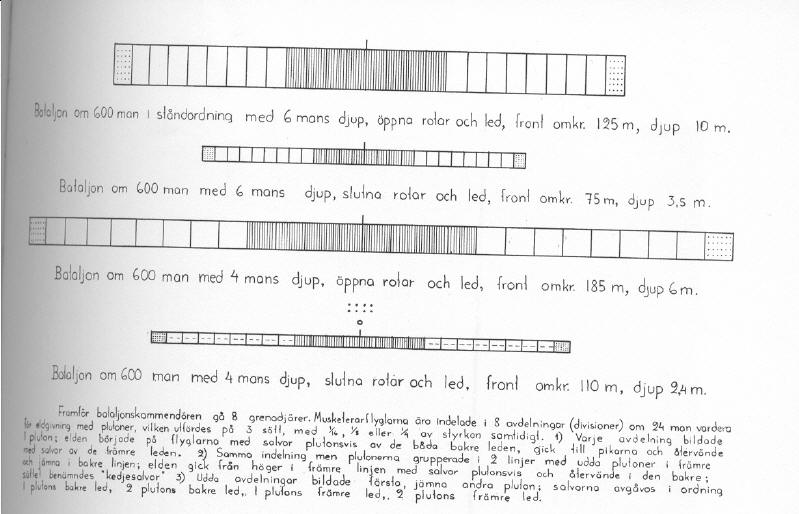 Bataljon om 600 man i ståndordning med 6 mans djup, öppna rotar och led, front omkr. 125 m, djup 10 m.
Bataljon om 600 man med 6 mans djup, slutna rotar och led, front omkr. 75 m, djup 3,5 m.
Bataljon om 600 man med 4 mans djup, öppna rotar och led, front omkr. 185 m, djup 6 m.
Bataljon om 600 man med 4 mans djup, slutna rotar och led, front omkr. 110 m, djup 2,4 m.
Framför bataljonskommendören gå 8 grenadjärer. Musketerarflyglarna äro indelade i 8 avdelningar (divisioner) om 24 man vardera
för eldgivning med plutoner, vilken utfördes på 3 sätt, med 1/16, 1/8 eller 1/4 av styrkan samtidigt. 1) Varje avdelning bildade
1 pluton; elden började på flyglarna med salvor plutonsvis av de båda bakre leden, gick till pikarna och återvände
med salvor av de främre leden. 2) Samma indelning men plutonerna grupperade i 2 linjer med udda plutoner i främre
och jämna i bakre linjen; elden gick från höger i främre linjen med salvor plutonsvis och återvände i den bakre;
sättet benämndes "kedjesalvor" 3) Udda avdelningar bildade första, jämna andra pluton; salvorna avgåvos i ordning
1 plutons bakre led, 2 plutons bakre led,. 1 plutons främre led,. 2 plutons främre led.